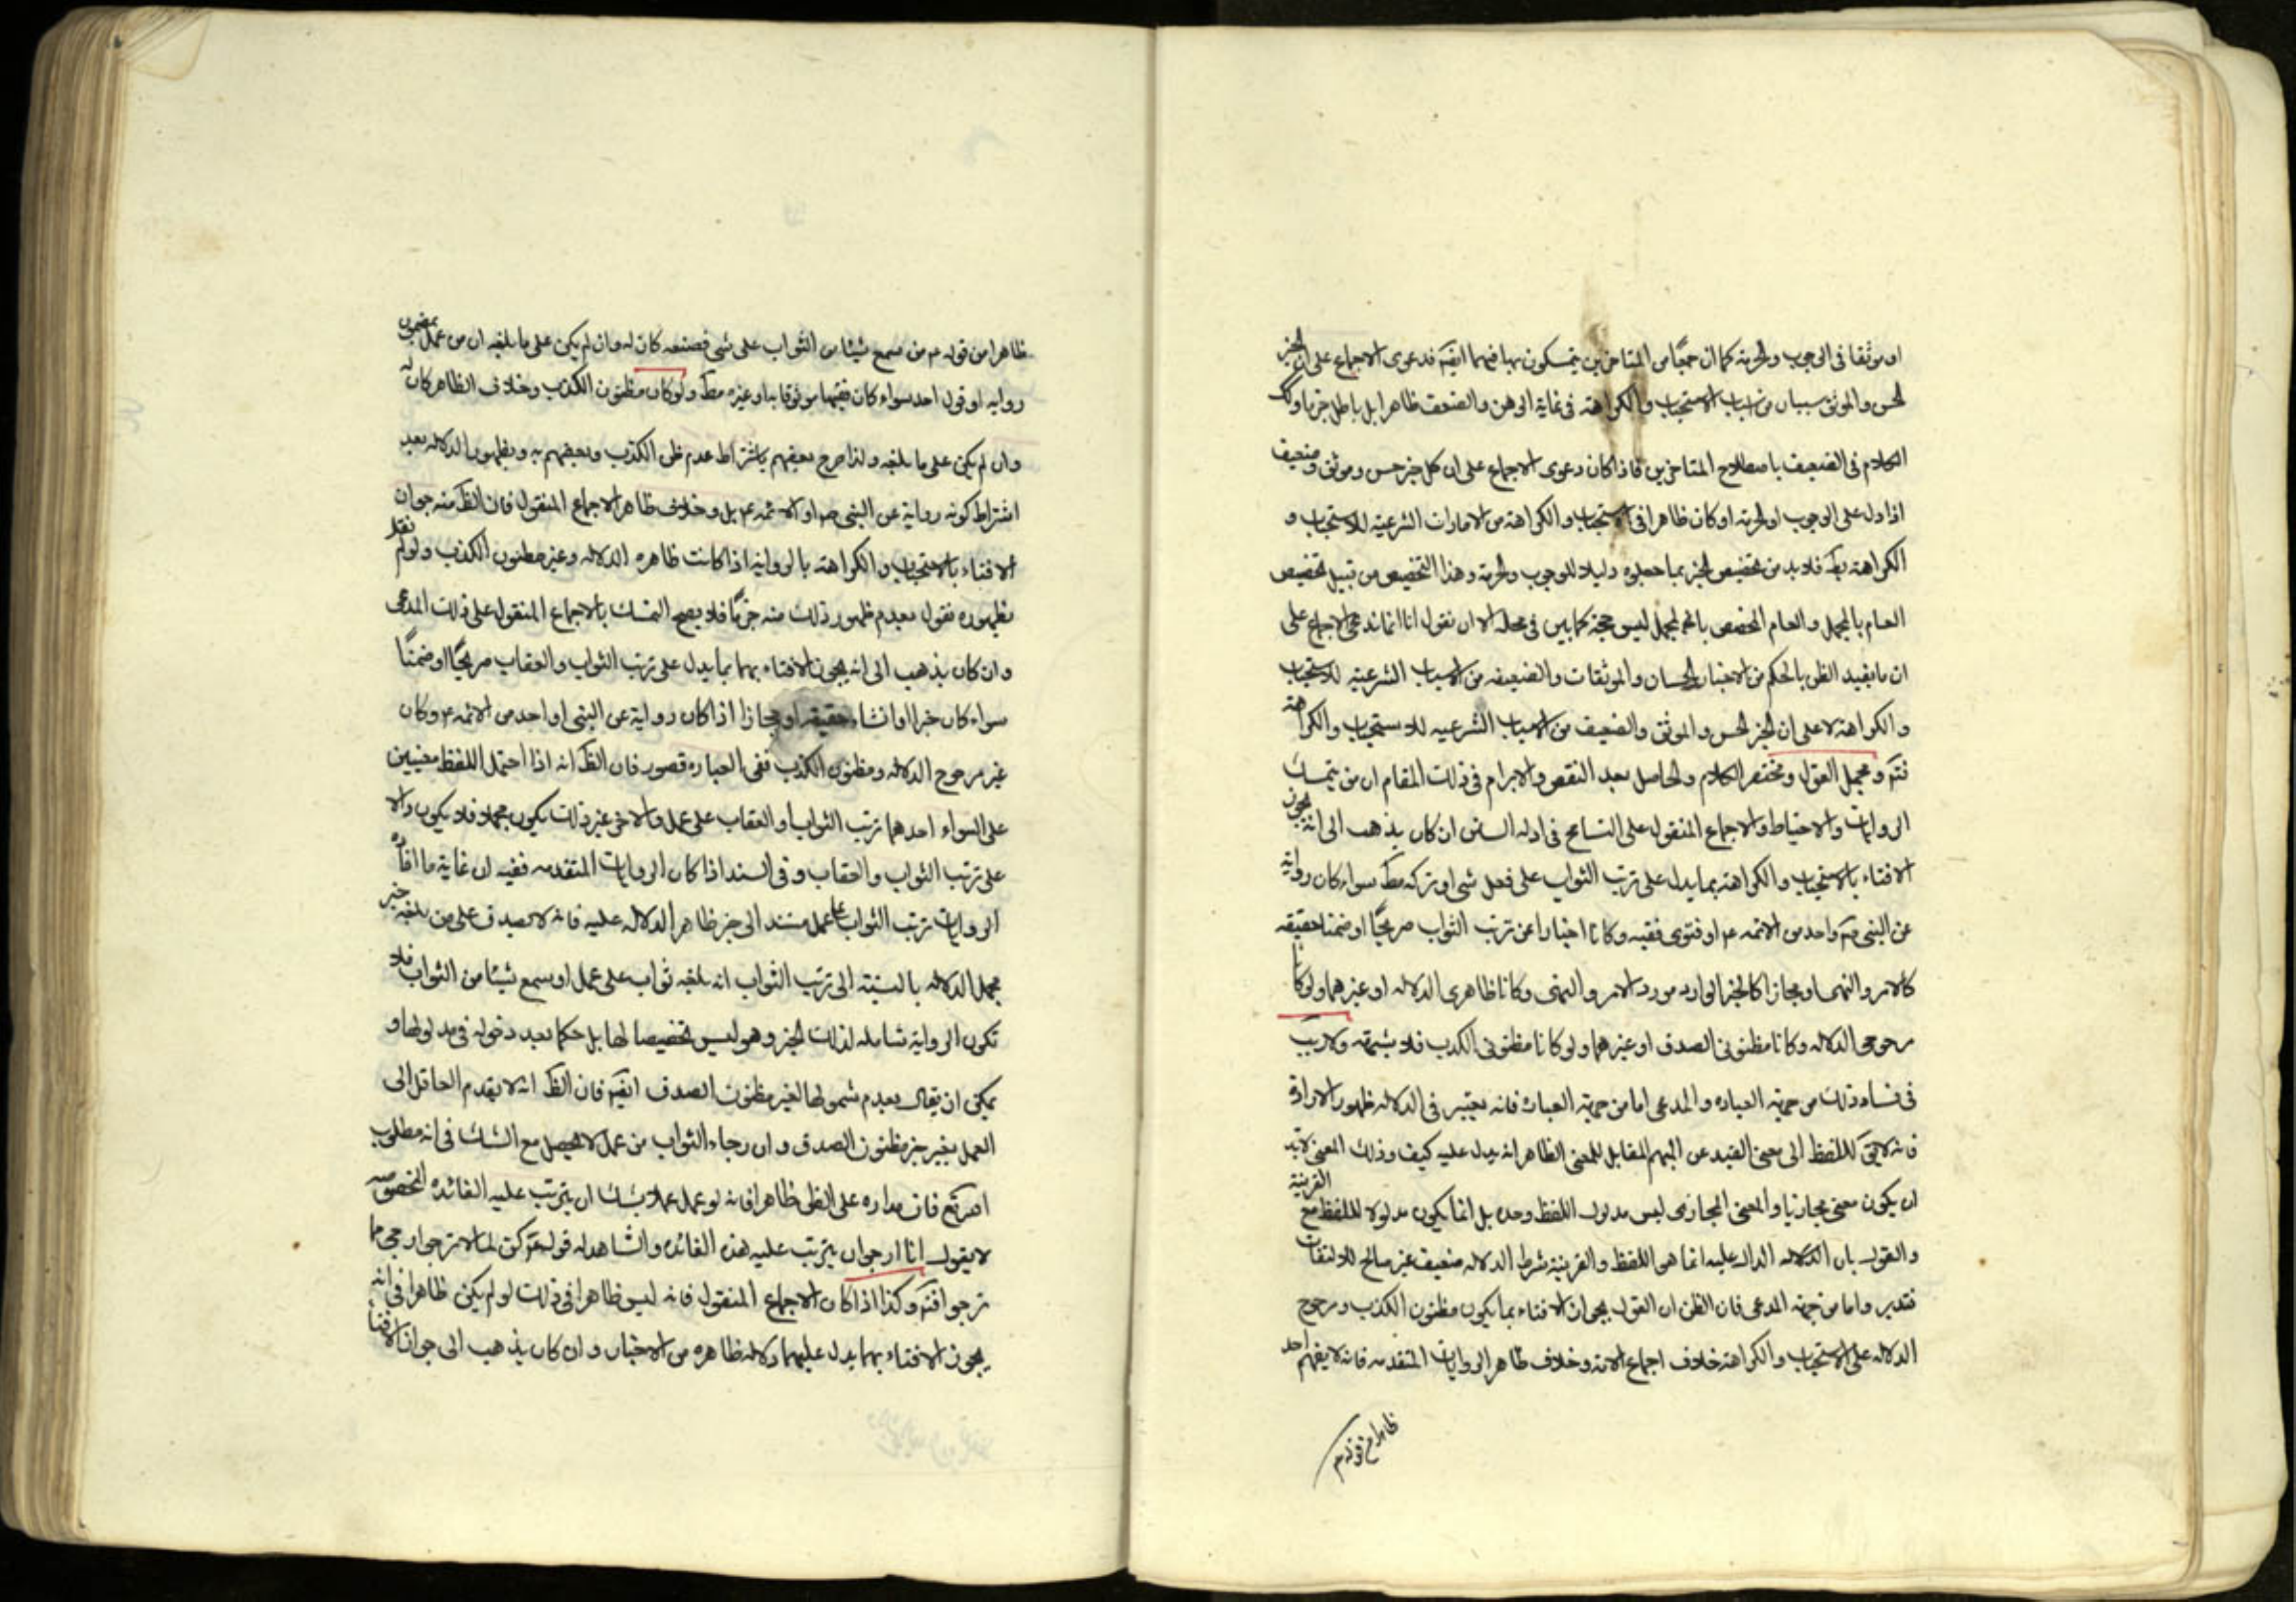 او موثقا فى الوجوب والحرمة كما ان جمعًا من المتاخرين يتمسكون بها فيهما ايضًا فدعوى الاجماع على ان الخبر
الحسن والموثق سببان من اسباب الاستحباب والكراهة فى غاية الوهن والضعف ظاهرا بل باطل جزما وكك
الكلام فى الضعيف باصطلاح المتاخرين فاذا كان دعوى الاجماع على ان كل خبر حسن وموثق وضعيف
اذا دل على الوجوب او الحرمة او كان ظاهرا فى الاستحباب والكراهة من الامارات الشرعية للاستحباب و
الكراهة فلا بد من تخصيص الخبر بما جعلوه دليلا للوجوب والحرمة وهذا التخصيص من قبيل تخصيص
العام بالمجمل والعام المخصص بالمجمل ليس حجة كما بين فى محله الا ان نقول انا انما ندعى الاجماع على
ان ما يفيد الظن بالحكم من الاخبار الحسان والموثقات والضعيفه من الاسباب الشرعية للاستحباب
والكراهة لا على ان الخبر الحسن والموثق والضعيف من الاسباب الشرعيه للاستحباب والكراهة
فتم ومجمل القول ومختصر الكلام والحاصل بعد النقض والابرام فى ذلك المقام ان من يتمسك
الروايات والاحتياط والاجماع المنقول على التسامح فى ادله السنن ان كان يذهب الى انه يجوز
الافتاء بالاستحباب والكراهة بما يدل على ترتب الثواب على فعل شى او تركه مط سواء كان رواية
عن النبى ص واحد من الائمه ع او فتوى فقيه وكانا اخبارا عن ترتب الثواب صريحًا او ضمنا حقيقه
كالامر والنهى او مجازا كالخبر الوارد مورد الامر والنهى وكانا ظاهرى الدلاله او غيرهما ولو كانا
مرجوحى الدلاله وكانا مظنونى الصدق او غيرهما ولو كانا مظنونى الكذب فلا شبهة ولا ريب
فى فساد ذلك من جهة العباره والمدعى اما من جهة العبارة فانه يعتبر فى الدلاله ظهور الارادة
فانه لا يق للفظ الى معنى البعيد عن الفهم المقابل للمعنى الظاهر انه يدل عليه كيف وذلك المعنى لا بد
ان يكون معنى مجازيا والمعنى المجازى ليس مدلول اللفظ وحده بل انما يكون مدلولا للفظ مع القرينة
والقول بان الدلاله الدال عليه انما هى اللفظ والقرينة شرط الدلاله ضعيف غير صالح للالتفات
فتدبر واما من جهة المدعى فان الظن ان القول بجواز الافتاء بما يكون مظنون الكذب ومرجوح
الدلاله على الاستحباب والكراهة خلاف اجماع الامة وخلاف ظاهر الروايات المتقدمه فانه لا يفهم احد
ظاهرا من قوله ع
ظاهرا من قوله ع من سمع شيئا من الثواب على شى فصنعه كان له وان لم يكن على ما بلغه ان من عمل بمضمون
روايه او قول احد سواء كان فقيها موثوقا به او غيره مط ولو كان مظنون الكذب وخلاف الظاهر كان له
وان لم يكن على ما بلغه ولذا صرح بعضهم باشتراط عدم ظن الكذب وبعضهم به وبظهور الدلاله بعد
اشتراط كونه رواية عن النبى ص او الائمه ع بل وخلاف ظاهر الاجماع المنقول فان الظ منه جواز
الافتاء بالاستحباب والكراهة بالرواية اذا كانت ظاهره الدلاله وغير مظنون الكذب ولو لم نقل
بظهوره نقول بعدم ظهور ذلك منه جزمًا فلا يصح التمسك بالاجماع المنقول على ذلك المدعى
وان كان يذهب الى انه يجوز الافتاء بهما بما يدل على ترتب الثواب والعقاب صريحًا او ضمنًا
سواء كان خبرا او انشاء حقيقه او مجازا اذا كان رواية عن النبى او احد من الائمه ع وكان
غير مرجوح الدلاله ومظنون الكذب ففى العباره قصور فان الظ انه اذا احتمل اللفظ معنيين
على السواء احدهما ترتب الثواب او العقاب على عمل والاخر غير ذلك يكون مجملا فلا يكون دالا
على ترتب الثواب والعقاب وفى السند اذا كان الروايات المتقدمه ففيه ان غاية ما افاده
الروايات ترتب الثواب على عمل مستند الى خبر ظاهر الدلاله عليه فانه لا يصدق على من بلغه خبر
مجمل الدلاله بالنسبة الى ترتب الثواب انه بلغه ثواب على عمل او سمع شيئا من الثواب فلا
تكون الرواية شامله لذلك الخبر وهو ليس تخصيصا لها بل حكما بعد دخوله فى مدلولها و
يمكن ان يقال بعدم شمولها لغير مظنون الصدق ايضًا فان الظ انه لا يقدم العاقل الى
العمل بغير خبر مظنون الصدق وان رجاء الثواب من عمل لا يحصل مع الشك فى انه مطلوب
فان مداره على الظن ظاهرا فانه لو عمل عملا بشك ان يترتب عليه الفائده المخصوصه
لا يقول انا ارجو ان يترتب عليه هذه الفائده والشاهد له قوله كن لما لا ترجو ارجى ما
ترجو افتم وكذا اذا كان الاجماع المنقول فانه ليس ظاهرا فى ذلك لو لم يكن ظاهرا فى انه
يجوز الافتاء بهما يدل عليهما دلاله ظاهره من الاخبار وان كان يذهب الى جواز الافتاء